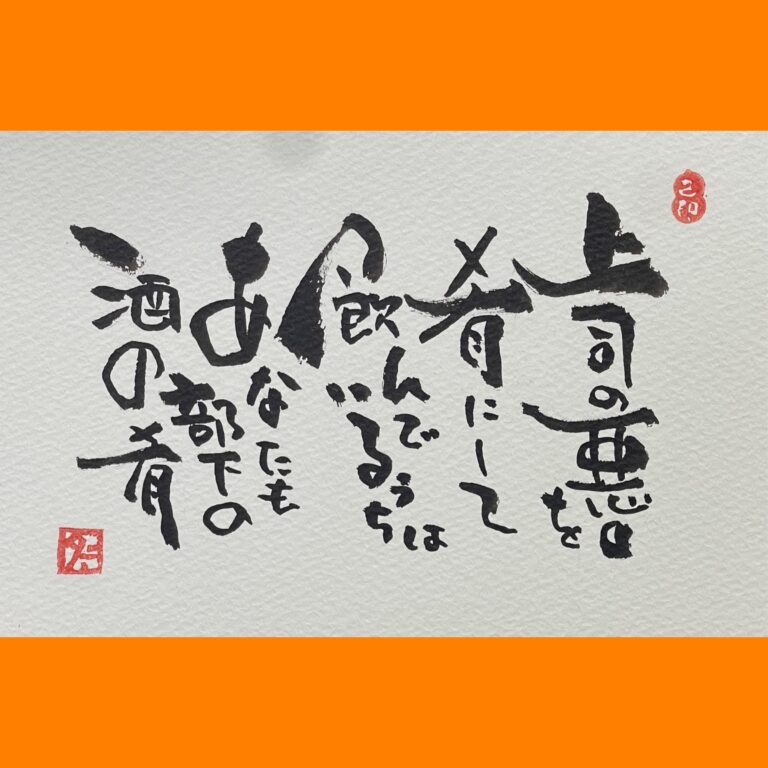 上司の悪口を
肴にして
飲んで
いる
うちは
あなたも
部下の
酒の肴